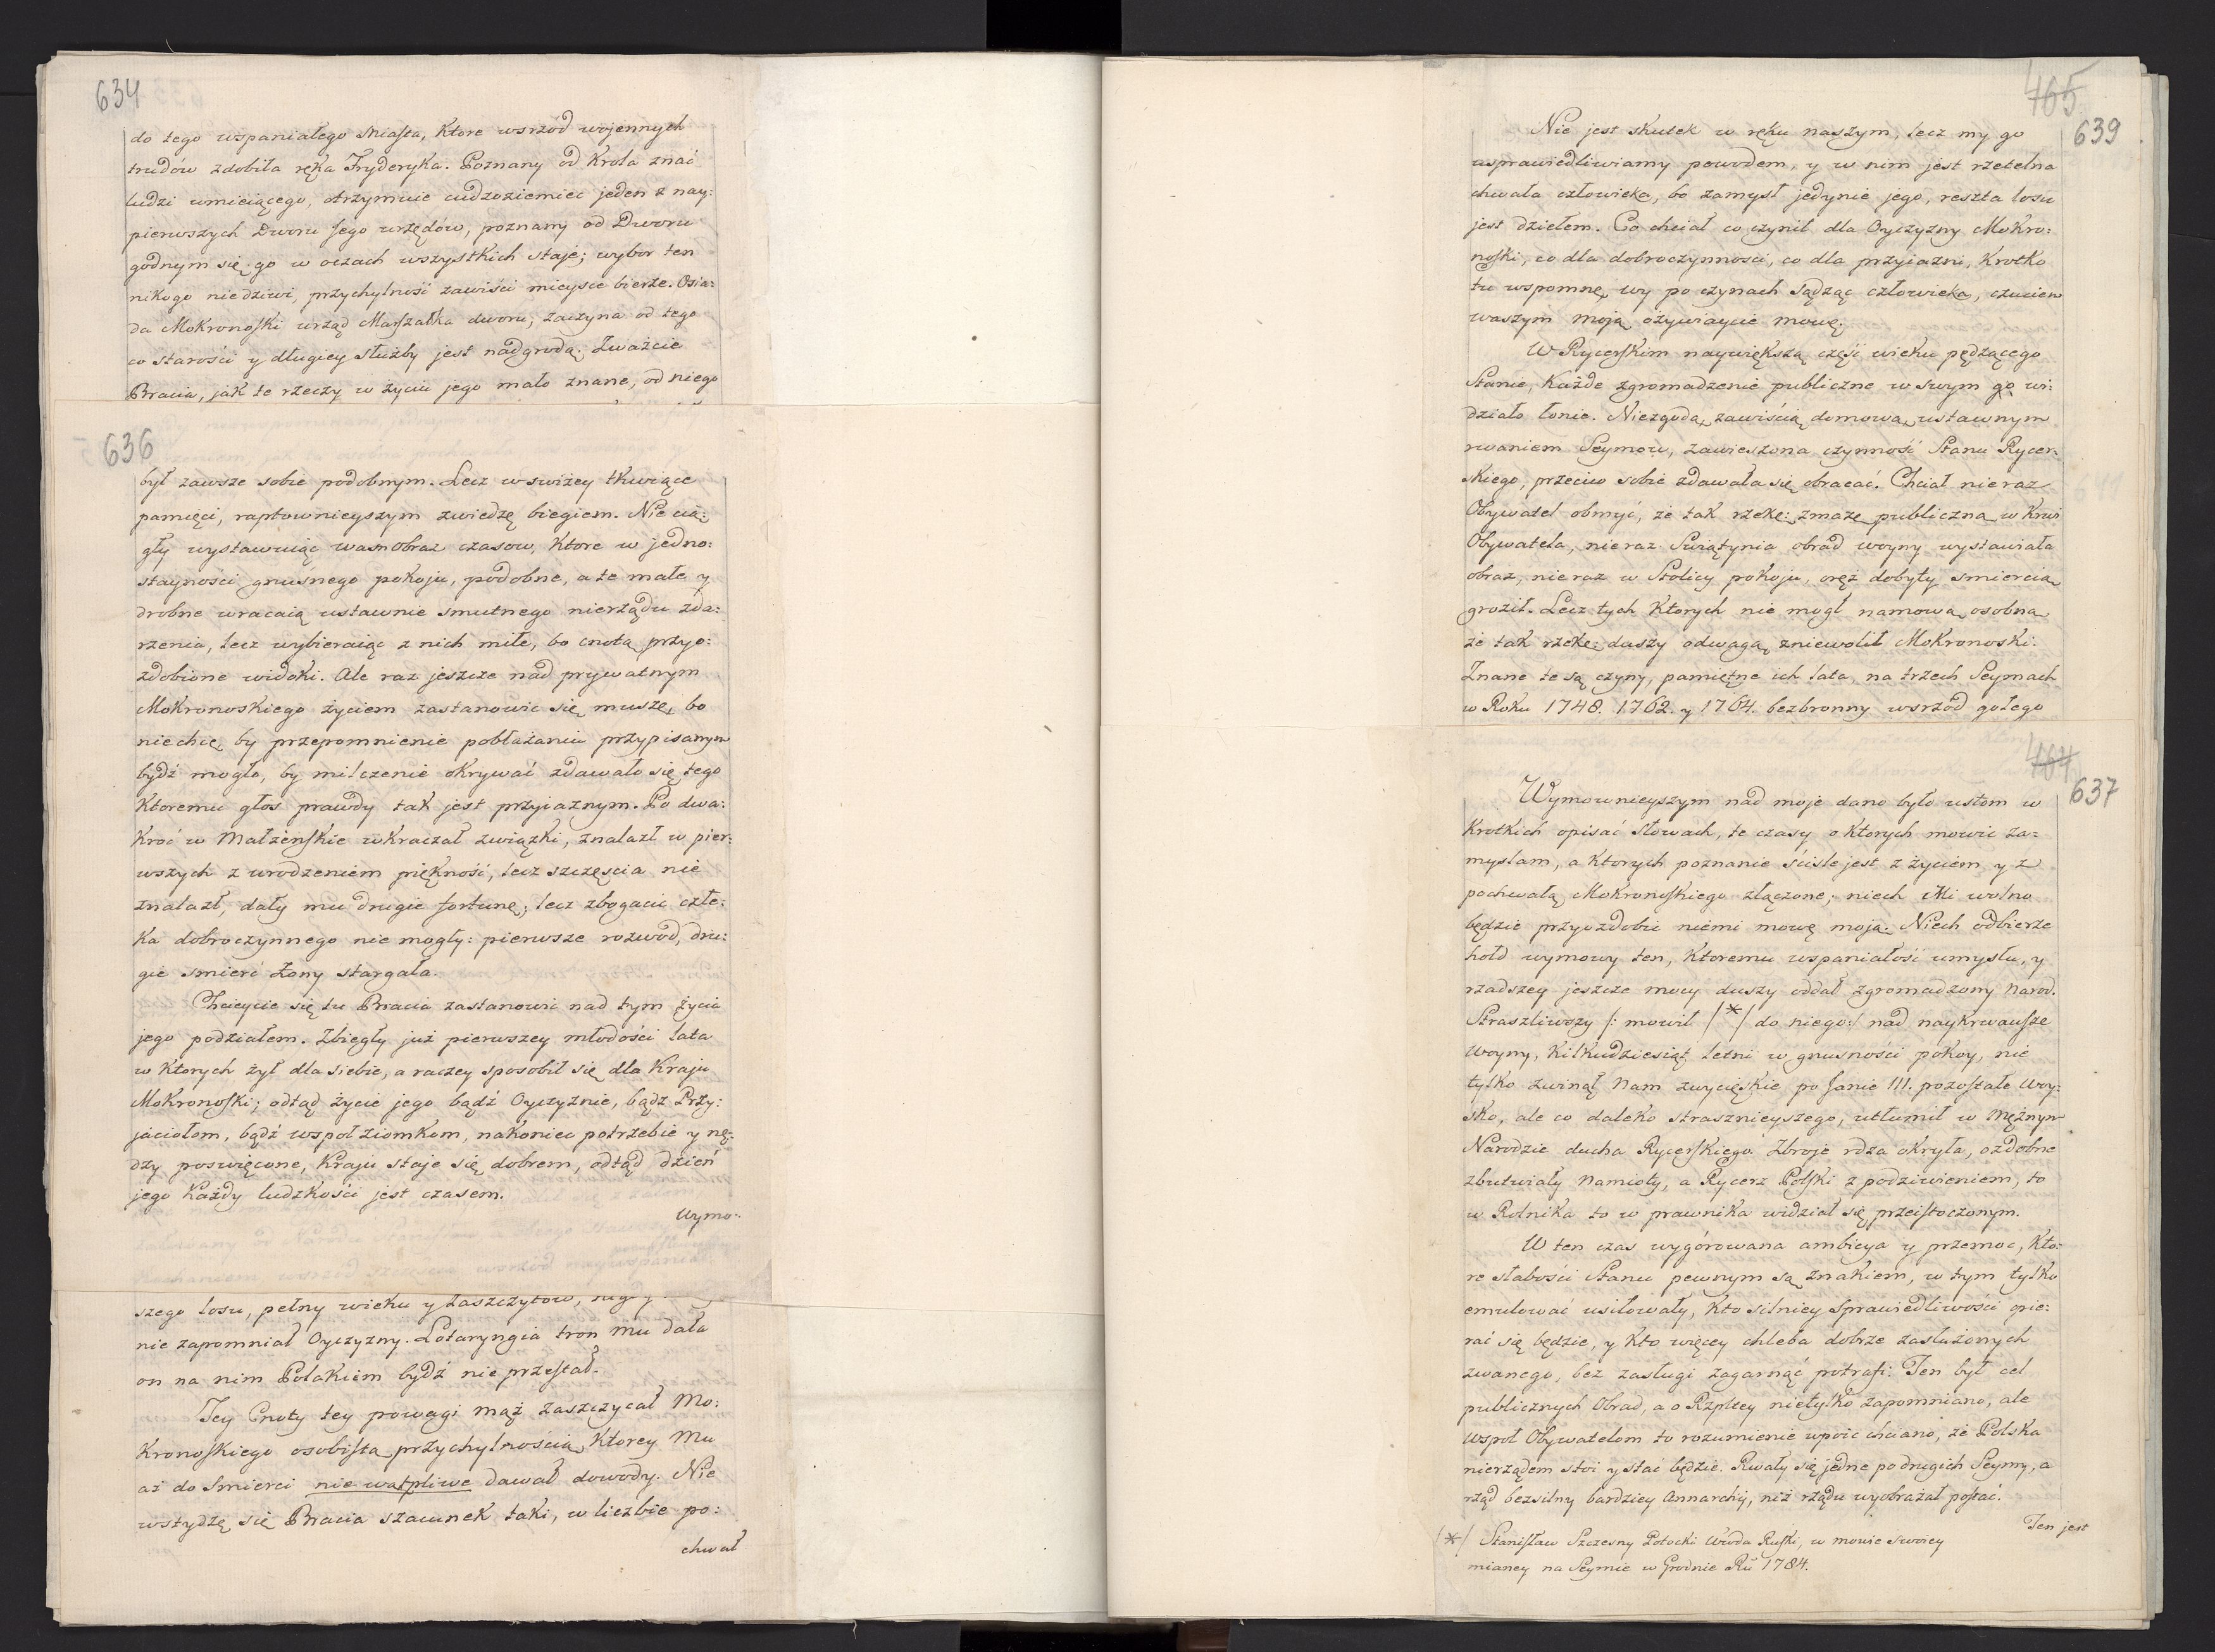 634
do tego wspaniałego Miasta, ktore wsrzod wojennych
trudów zdobiła ręka Fryderyka. Poznany od Krola znać
ludzi umieiącego, otrzymuie cudzoziemiec jeden z nay:
pierwszych Dworu jego urzędów, poznany od Dworu
godnym się go w oczach wszystkich staje; wybor ten
nikogo niedziwi, przychylność zawiści mieysce bierze. Osia:
da Mokronoski urząd Marszałka dworu, zaczyna od tego
co starości y długiey służby jest nadgrodą. Zważcie
Bracia, jak te rzeczy w życiu jego mało znane, od niego
636
był zawsze sobie podobnym. Lecz w swiżey tkwiące
pamięci, raptownieyszym zwiedzę biegiem. Nie cią:
gły wystawuiąc wam obraz czasow, ktore w jedno:
stayności gnuśnego pokoju, podobne, a te małe y
drobne wracaią ustawnie smutnego nierządu zda:
rzenia, lecz wybieraiąc z nich miłe, bo cnotą przyo:
zdobione widoki. Ale raz jeszcze nad prywatnym
Mokronoskiego życiem zastanowic się muszę, bo
niechcę by przepomnienie pobłażaniu przypisanym
bydź mogło, by milczenie okrywać zdawało się tego
ktoremu głos prawdy tak jest przyiaznym. Po dwa:
kroć w Małżenskie wkraczał związki, znalazł w pier:
wszych z urodzeniem piękność, lecz szczęscia nie
znalazł, dały mu drugie fortunę; lecz zbogacic człe:
ka dobroczynnego nie mogły: pierwsze rozwod, dru:
gie smierć Żony stargała.
Chcieycie się tu Bracia zastanowić nad tym życia
jego podziałem. Zbiegły już pierwszey młodości lata
w ktorych żył dla siebie, a raczey sposobił się dla Kraju
Mokronoski; odtąd życie jego bądź Oyczyznie, bądz Przy:
jaciołom, bądź wspoł ziomkom, nakoniec potrzebie y nę:
dzy poswięcone, Kraju staje się dobrem, odtąd dzień
jego każdy ludzkości jest czasem.
Wymo:
szego losu, pełny wieku y zaszczytow,
nie zapomniał Oyczyzny. Lotaryngia tron mu dała
on na nim Polakiem bydź nie przestał.
Tey Cnoty tey powagi mąż zaszczycał Mo:
kronoskiego osobistą przychylnością, ktorey mu
aż do Smierci nie wątpliwe dawał dowody. Nie
wstydzę się Bracia szacunek taki, w liczbie po:
chwał
465
639
Nie jest skutek w ręku naszym, lecz my go
usprawiedliwiamy powodem, y w nim jest rzetelna
chwała człowieka, bo zamysł jedynie jego, reszta losu
jest dziełem. Co chciał co czynił dla Oyczyzny Mokro:
noski, co dla dobroczynnosci, co dla przyiazni, krotko
tu wspomnę, wy po czynach sądząc człowieka, czuciem
waszym moją ożywiaycie mowę.
W Rycerskim naywiększą część wieku pędzącego
Stanie, każde zgromadzenie publiczne w swym go wi:
działo łonie. Niezgodą, zawiścią domową, ustawnym
rwaniem Seymow, zawieszona czynność Stanu Rycer:
skiego, przeciw sobie zdawała się obracać. Chciał nie raz
Obywatel obmyć, że tak rzekę: zmazę publiczną w krwi
Obywatela, nie raz Swiątynia obrad woyny wystawiała
obraz, nie raz w Stolicy pokoju, oręż dobyty smiercią
groził. Lecz tych ktorych nie mogł namową, osobną
że tak rzekę: duszy odwagą, zniewolił Mokronoski.
Znane te są czyny, pamiętne ich lata, na trzech Seymach
w Roku 1748. 1762. y 1764. bezbronny wsrzod gołego
464
637
Wymownieyszym nad moje dano było ustom w
krotkich opisać słowach, te czasy o ktorych mowic za:
myslam, a ktorych poznanie ściśle jest z życiem, y z
pochwałą Mokronoskiego złączone; niech Mi wolno
będzie przyozdobic niemi mowę moją. Niech odbierze
hołd wymowy ten, ktoremu wspaniałość umysłu, y
rzadszey jeszcze mocy duszy oddał zgromadzony Narod.
Straszliwszy /: mowił /*/ do niego:/ nad naykrwawsze
woyny, kilkudziesiąt letni w gnusności pokoy, nie
tylko zwinął Nam zwycięskie po Janie III. pozostałe Woy:
sko, ale co daleko strasznieyszego, utłumił w mężnym
Narodzie ducha Rycerskiego. Zbroje rdza okryła, ozdobne
zbutwiały Namioty, a Rycerz Polski z podziwieniem, to
w Rolnika to w prawnika widział się przeistoczonym.
W ten czas wygórowana ambicya y przemoc, kto:
re słabości Stanu pewnym są znakiem, w tym tylko
emulować usiłowały, kto silniey Sprawiedliwości opie:
rać się będzie, y kto więcey chleba dobrze zasłużonych
zwanego, bez zasługi zagarnąć potrafi. Ten był cel
publicznych Obrad, a o Rzpltey nietylko zapomniano, ale
wspoł Obywatelom to rozumienie wpoić chciano, że Polska
nierządem stoi y stać będzie. Rwały się jedne po drugich Seymy, a
rząd bezsilny bardziey Annarchij, niż rządu wyobrażał postać.
Ten jest
/*/ Stanisław Szczesny Potocki Wwda Ruski, w mowie swoiey
mianey na Seymie w Grodnie Rũ 1784.